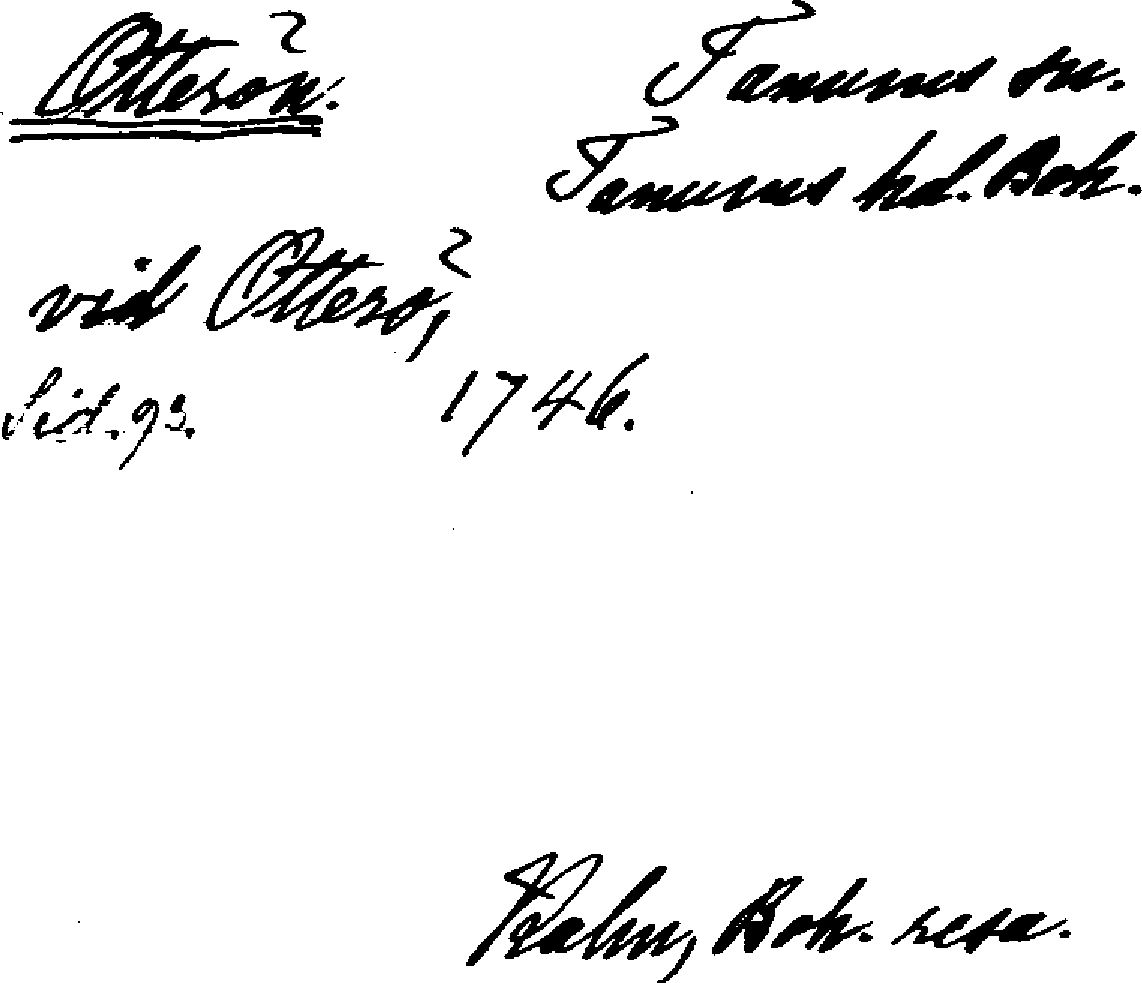 Otterön.
Tanums sn.
Tanums hd. Boh.
vid Otterö,
Sid. 93. 1746.
Kalm, Boh. resa.